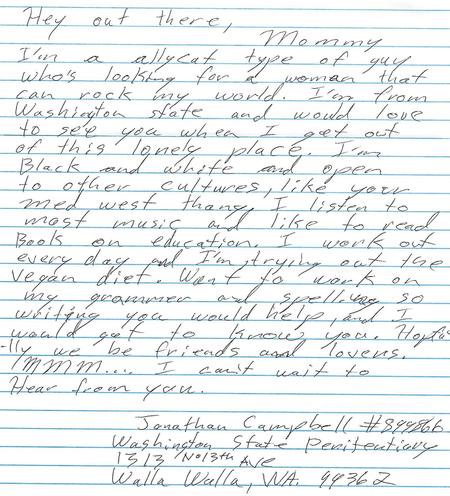 Hey out there,
Mommy
I'm a allycat type of guy
who's looking for a woman that
can rock my world. I'm from
Washington state and would love
to see you when I get out
of this lonely place. I'm
Black and white and open
to other cultures, like your
med west thang. I listen to
most music and like to read
Book on education. I work out
every day and I'm trying out the
vegan diet. Want to work on
my grammer and spelling so
writing you would help, and I
would get to know you. Hopfu
-lly we be friends and lovers.
MMM.... I can't wait to
Hear from you.
Jonathan Campbell #899866
Washington State Penitentiary
1313 No 13th Ave
Walla Walla, WA. 99362